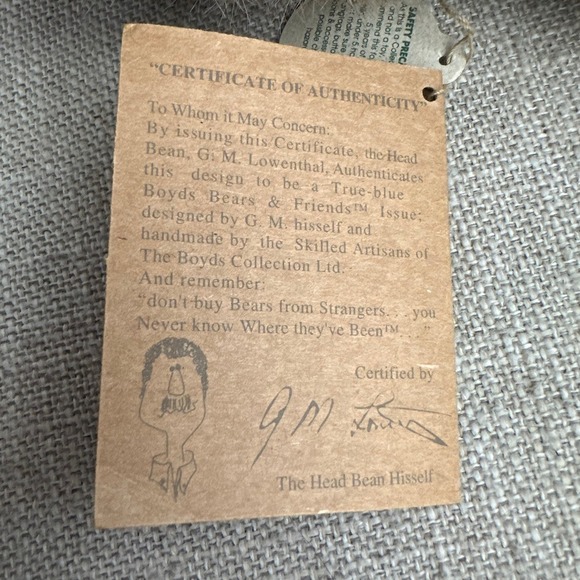 SAFETY PREC
"CERTIFICATE OF AUTHENTICITY"
To Whom it May Concern:
By issuing this Certificate, the Head
Bean, G. M. Lowenthal, Authenticates
this design to be a True-blue
Boyds Bears & Friends™ Issue;
designed by G. M. hisself and
handmade by the Skilled Artisans of
The Boyds Collection Ltd.
And remember:
"don't buy Bears from Strangers. . . you
Never know Where they've Been™ . . ."
Certified by
The Head Bean Hisself